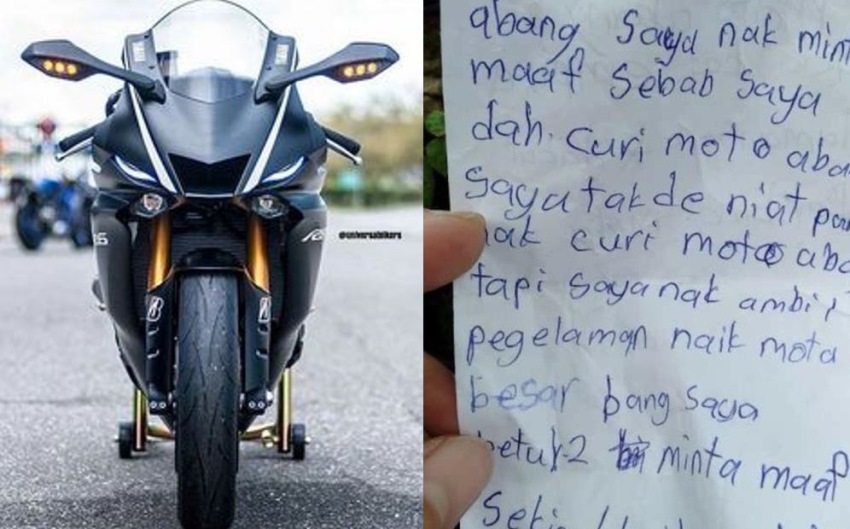 @universalbikers
abang saya nak
maaf sebab saya
dah. curi moto
saya takde niat
nak curi moto
tapi saya nak
pegelaman naik mota
besar bang saya
betul-2 minta maaf